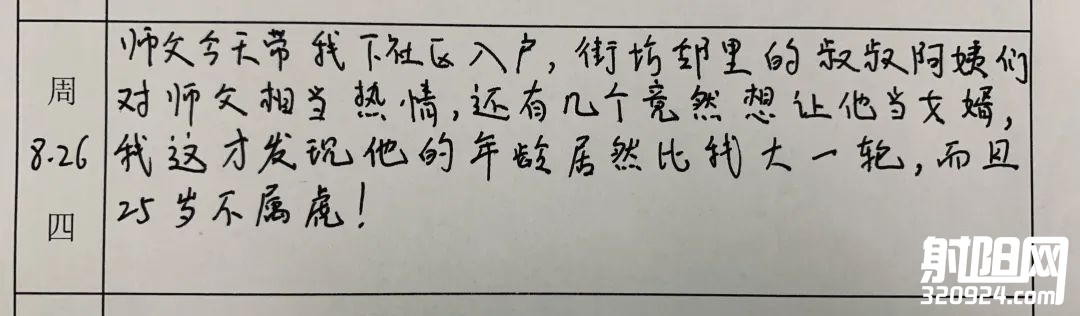 周
8.26
四
师父今天带我下社区入户，街坊邻里的叔叔阿姨们
对师父相当热情，还有几个竟然想让他当女婿，
我这才发现他的年龄居然比我大一轮，而且
25岁不属虎！
射阳网
320924.com